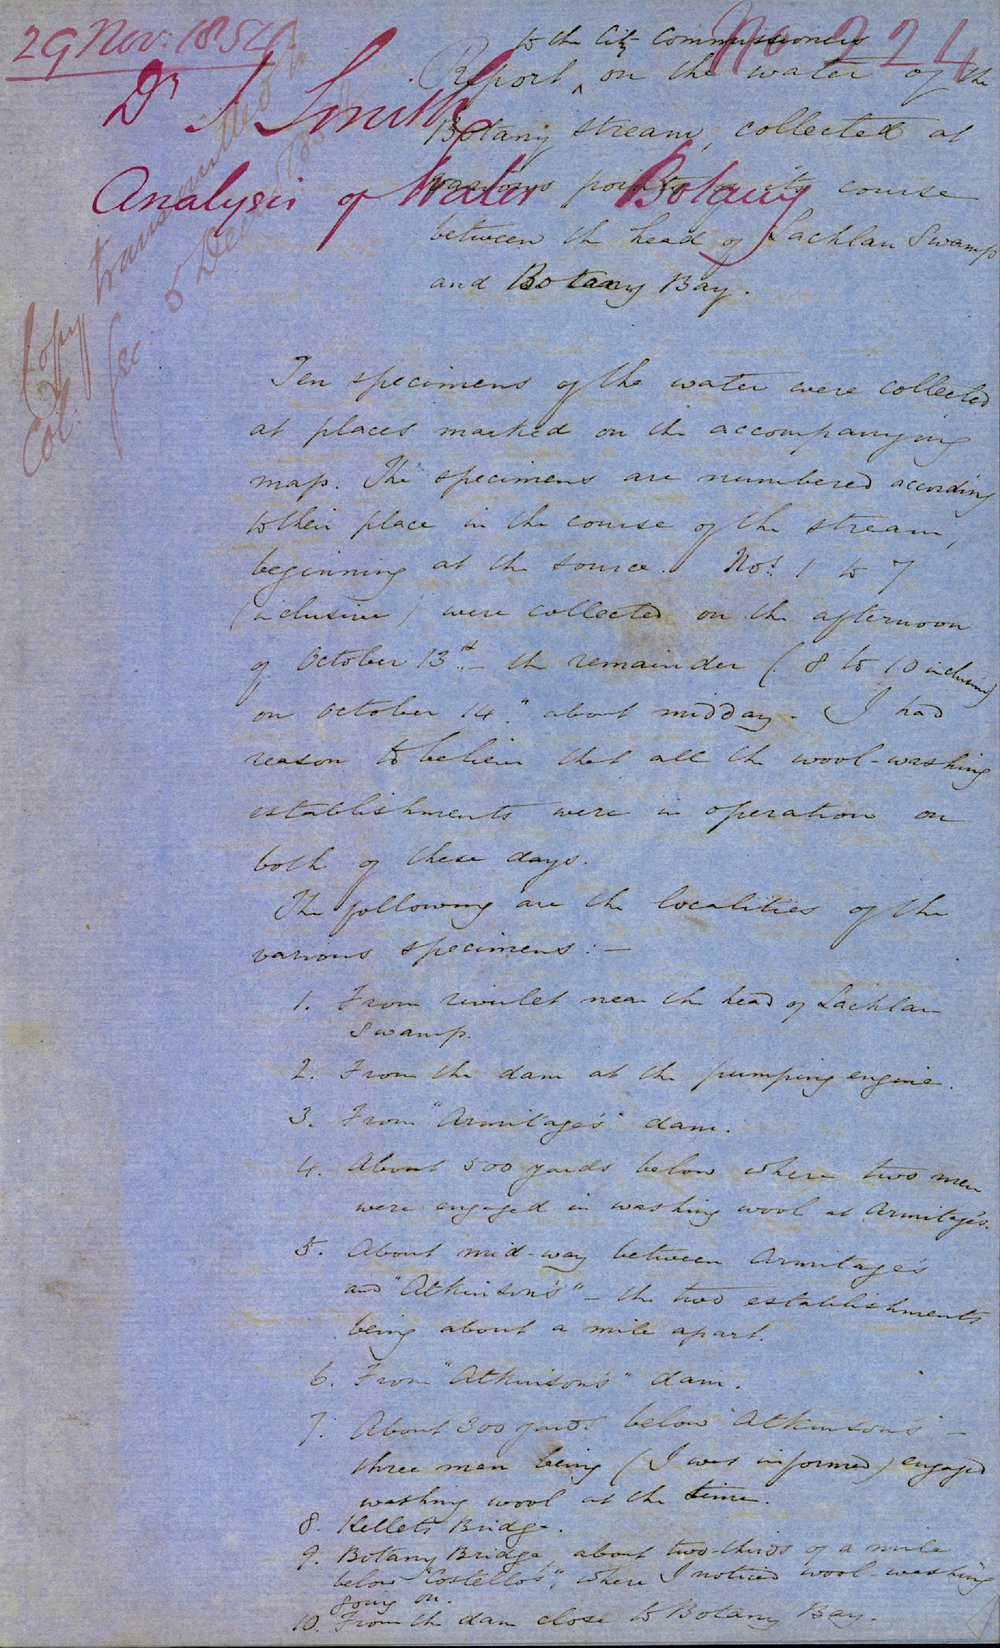 29 Nov: 1854.
No 224
Dr Smith
Analysis of Water Botany
Copy transmitted to
Col: Sec: 5 Dec
to the City Commissioners
Report ^ on the water of the
Botany stream, collected at
various points in its course
between the head of Lachlan Swamp
and Botany Bay.
Ten specimens of the water were collected
at places marked on the accompanying
map. The specimens are numbered according
to their place in the course of the stream,
beginning at the source. Nos. 1 to 7
(inclusive) were collected on the afternoon
of October 13th – the remainder (8 to 10 inclusive)
on October 14th about midday. I had
reason to believe that all the wool-washing
establishments were in operation on
both of these days.
The following are the localities of the
various specimens: –
1. From rivulet near the head of Lachlan
Swamp.
2. From the dam at the pumping engine.
3. From "Armitage's" dam.
4. About 500 yards below where two men
were engaged in washing wool at Armitage's.
5. About mid-way between Armitage's
and "Atkinson's" – the two establishments
being about a mile apart.
6. From "Atkinson's" dam.
7. About 300 yards below "Atkinson's" –
three men being (I was informed) engaged
washing wool at the time.
8. Kellett's Bridge.
9. Botany Bridge, about two-thirds of a mile
below "Costello's", where I noticed wool-washing
going on.
10. From the dam close to Botany Bay.